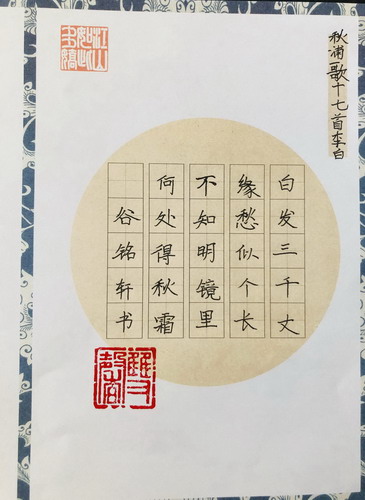 秋浦歌十七首李白
白发三千丈
缘愁似个长
不知明镜里
何处得秋霜
谷铭轩书
江山
如此
多娇